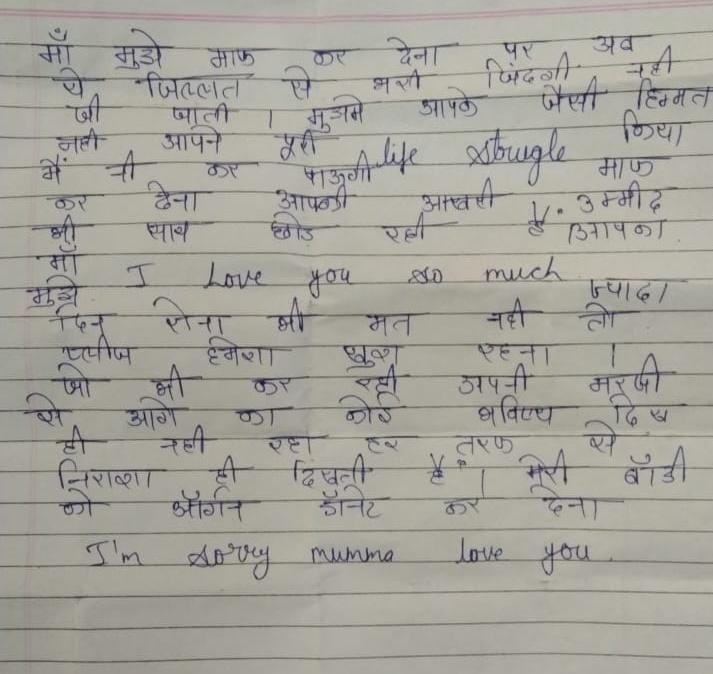 माँ मुझे माफ कर देना पर अब
ये जिल्लत से भरी जिंदगी नही
जी जाती । मुझमे आपके जैसी हिम्मत
नही आपने पूरी life strugle किया
मैं नी कर पाऊगी माफ
कर देना आपकी आखरी उम्मीद
भी साथ छोड रही है । आपका
माँ I Love you so much ज्यादा
मुझे
दिन रोना भी मत नही तो
प्लीज हमेशा खुश रहना ।
जो भी कर रही अपनी मरजी
से आगे का कोई भविष्य दिख
ही नही रहा हर तरफ से
निराशा ही दिखती है । मेरी बॉडी
को ऑर्गन डॉनेट कर देना
I'm sorry mumma love you